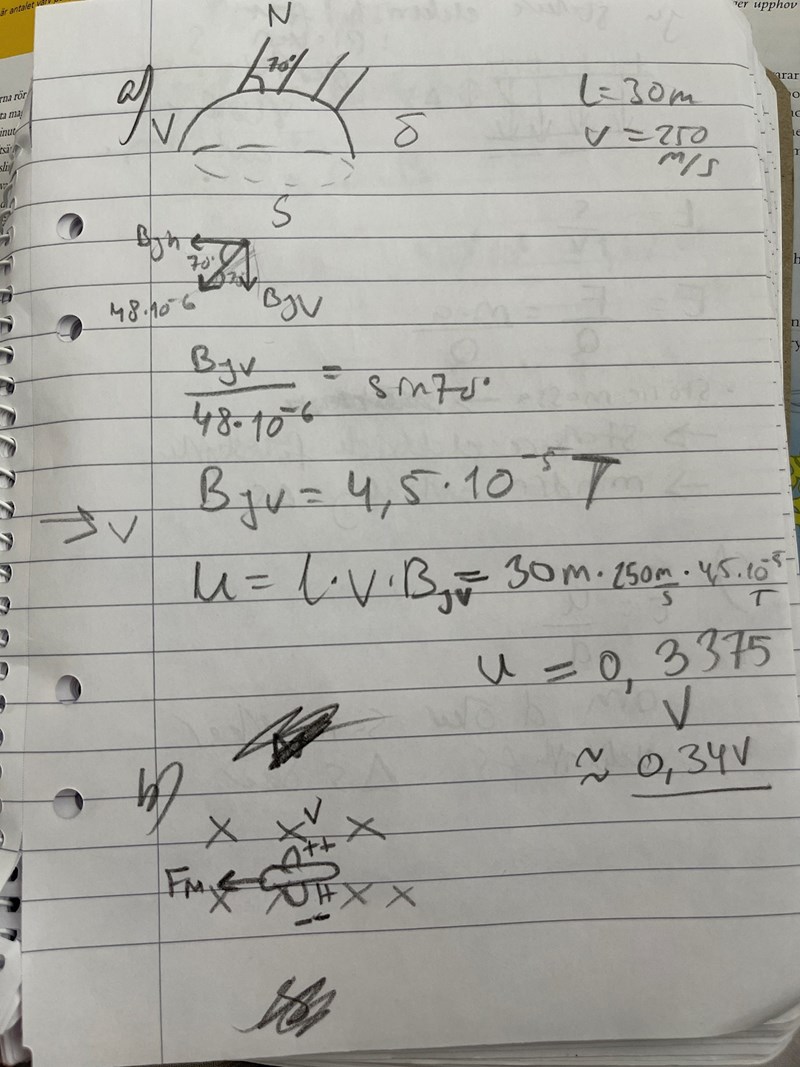 är antalet varv
er upphov
N
a) 70° l = 30m
V Ö v = 250 m/s
S
Bjh
70°
70°
48·10⁻⁶ BjV
Bjv / 48·10⁻⁶ = sin70°
Bjv = 4,5·10⁻⁵ T
→ V
U = l·V·Bjv = 30m·250m/s·4,5·10⁻⁵ T
u = 0,3375 V
≈ 0,34V
b)
× ×V ×
++
FM
× × H × ×
--